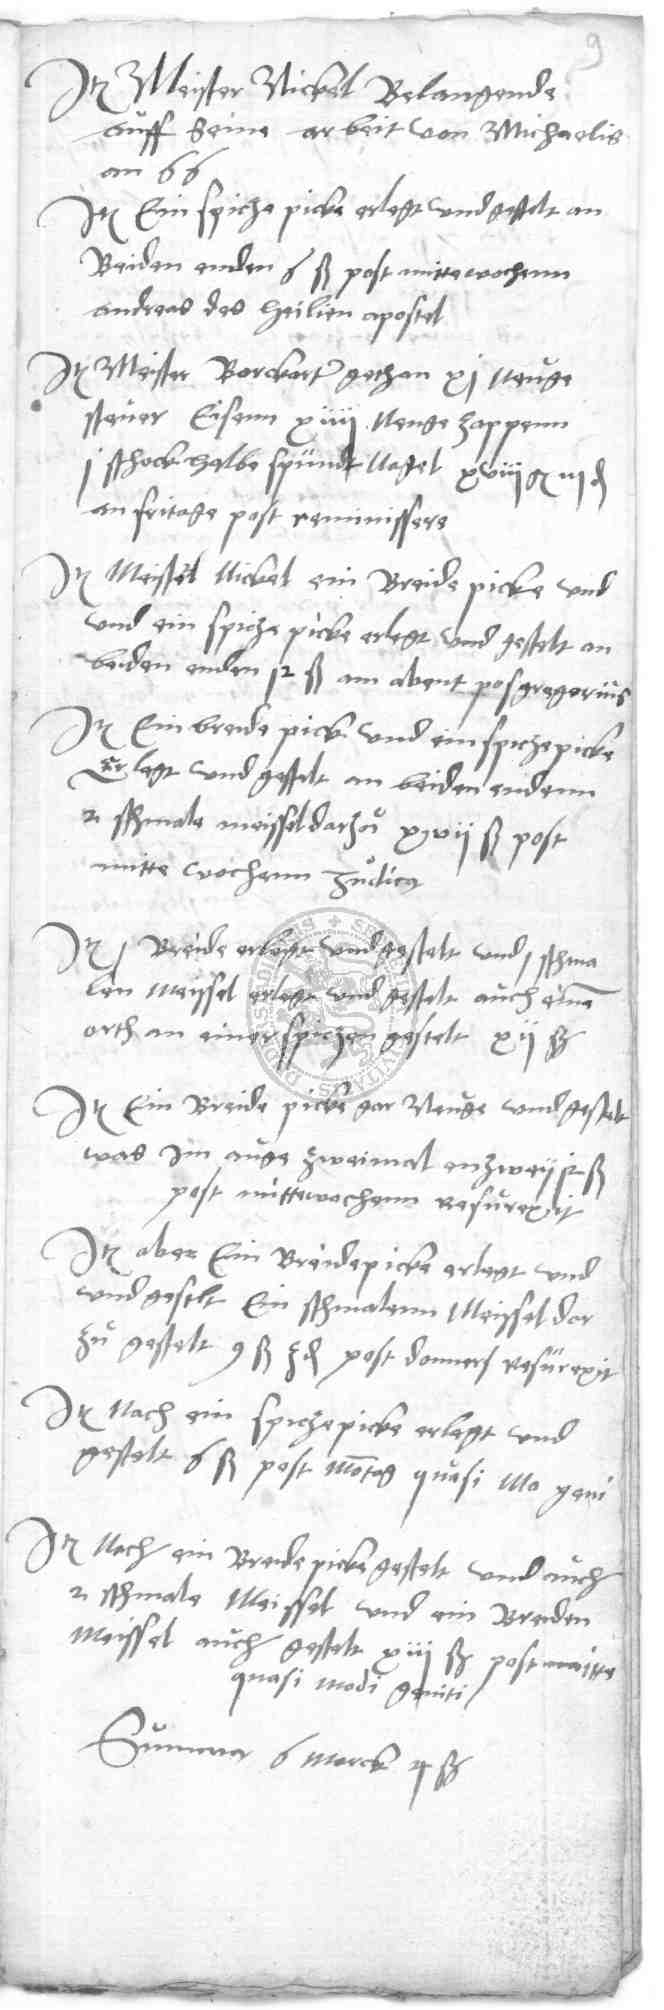 9
Jt Meister Nickel Belangende
auff seine arbeit von Michaelis
an 66
Jt Ein spicze picke erlegt vnd gestelt an
Beiden enden 6 ß post mittewochenn
andreas des heilien apostel
Jt Meister Borckart gethan xj Neuge
steuer Eisenn xiiij Neuge zappenn
j schock halbe spundt Nagel xviij
an fritage post reminissere
Jt Meister Nickel ein Breide picke vnd
vnd ein spicze picke erlegt vnd gestelt an
beiden enden 12 ß am abent pos gregorius
Jt Ein breide pick vnd ein spicze picke
Er legt vnd gestelt an beiden endenn
2 schmale meissel darzu xvij ß post
mitte wochenn Judica
Jt j Breide erlegt vnd gestelt vnd j schma
len Meyssel erlegt vnd gestelt auch einē
orth an einer spiczen gestelt xij ß
Jt Ein Breide picke gar Neuge vnd gestelt
was Im auge zweimal enzweij 12 ß
post mittewochenn resurexit
Jt aber Ein Breide picke erlegt vnd
vnd gestelt Ein schmalenn Meyssel dar
zu gestelt 9 ß post donners resurexit
Jt Nach ein spicze picke erlegt vnd
gestelt 6 ß post Mōtag quasi Mo geni
Jt Noch ein Breide picke gestelt vnd auch
2 schmale Meissel vnd ein Breiden
Meissel auch gestelt xiij ß post mitte
quasi modi geniti
Summa 6 Marck 4 ß